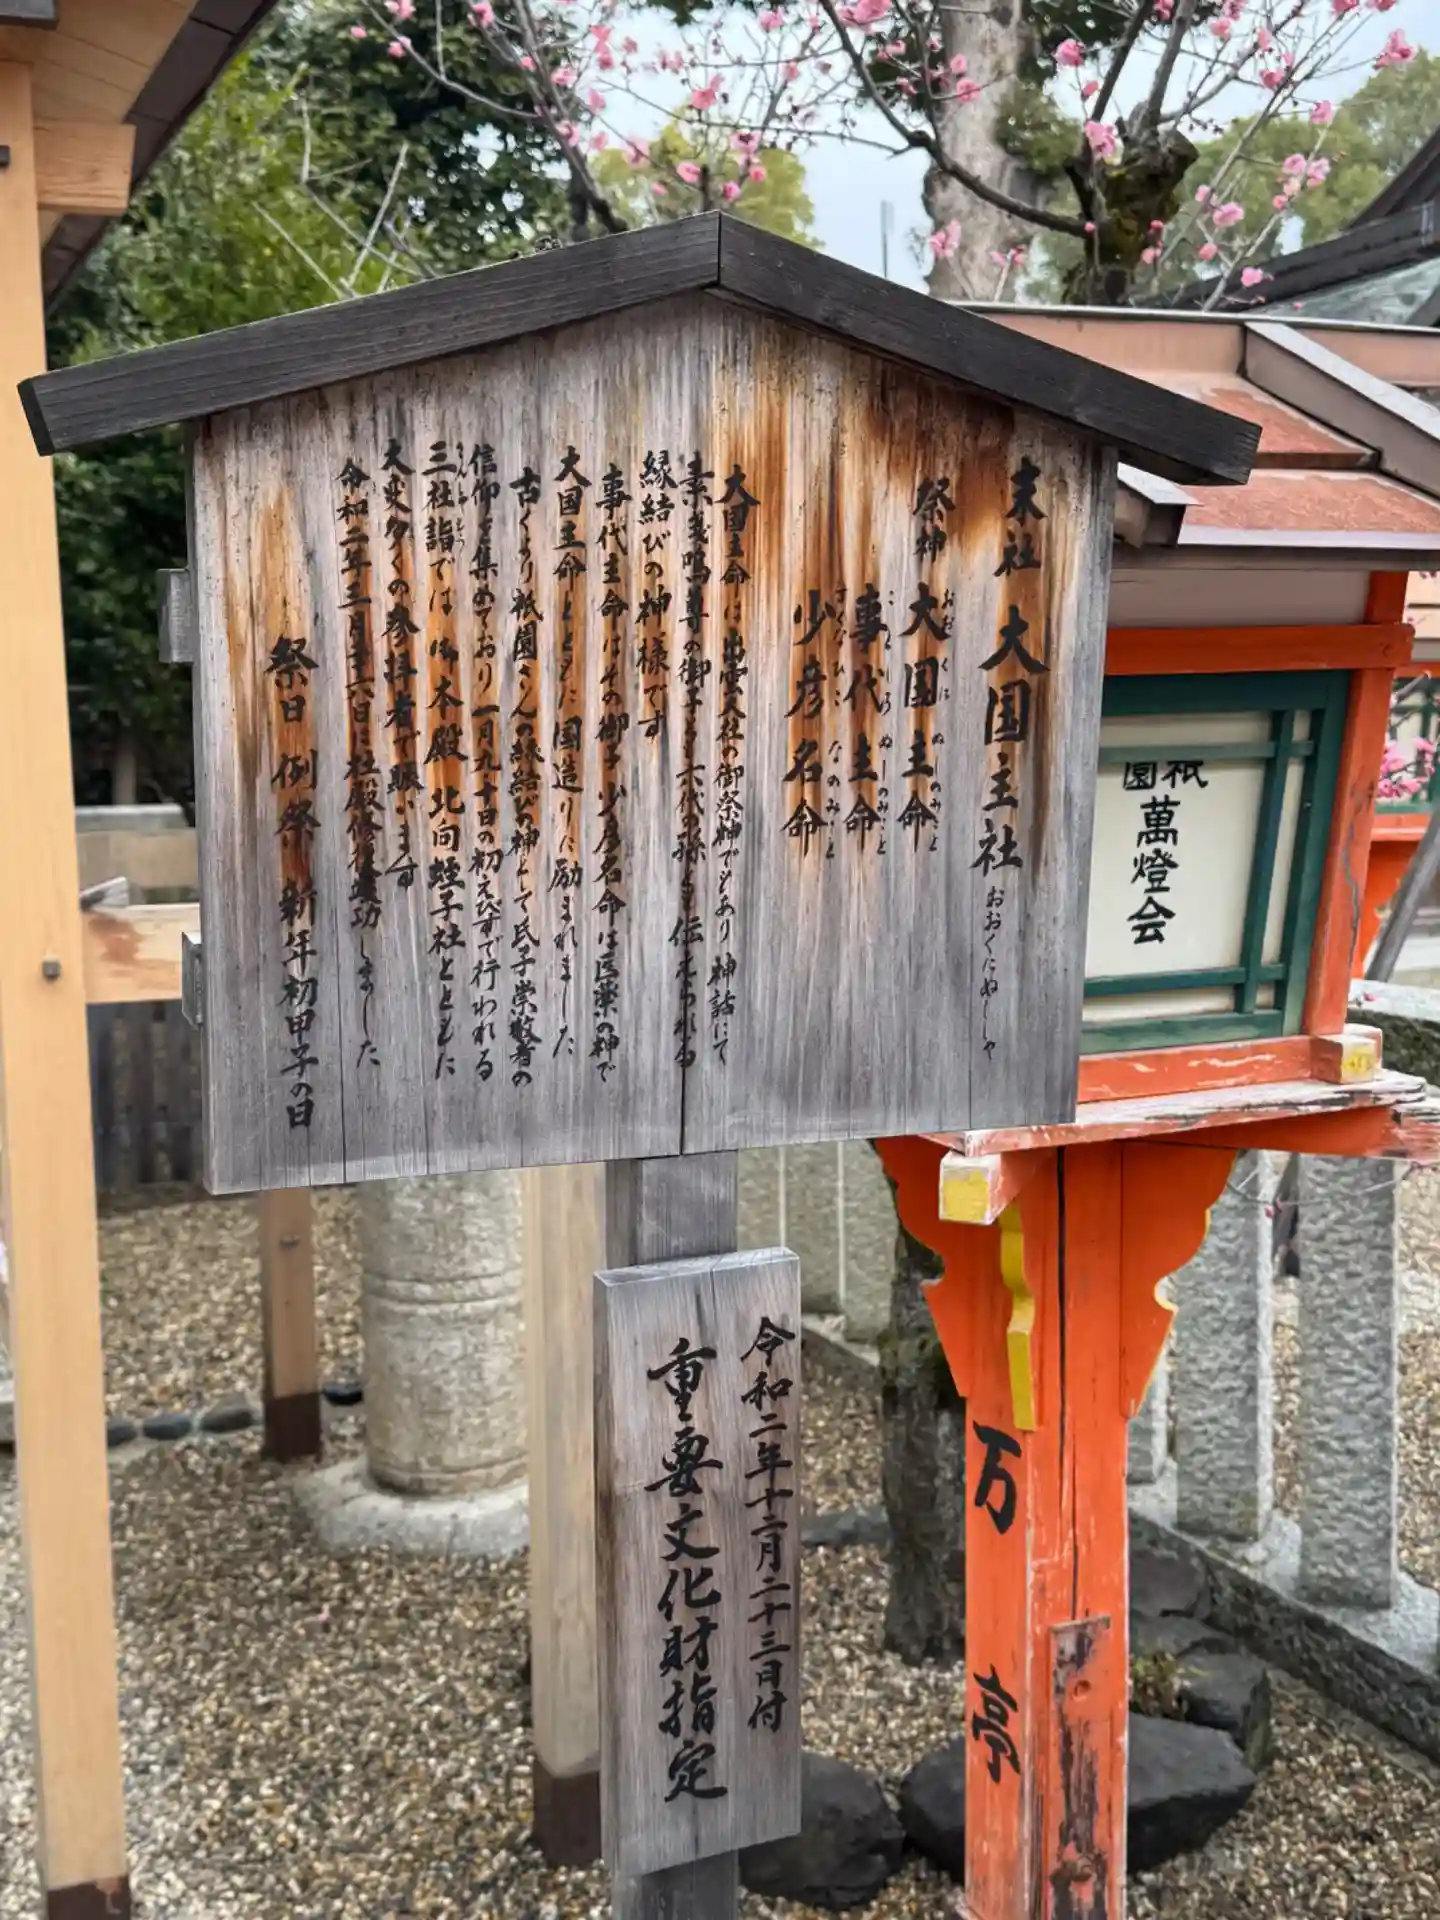 末社 大国主社
おおくにぬしゃ
祭神 大国主命
おおくにぬしのみこと
事代主命
ことしろぬしのみこと
少彦名命
すくなひこなのみこと
大国主命は出雲大社の御祭神でもあり神話にて
素戔鳴尊の御子とも六代の孫とも伝えられる
縁結びの神様です
事代主命はその御子 少彦名命は医薬の神で
大国主命とともに国造りに励まれました
古くより祇園さんの縁結びの神として氏子崇敬者の
信仰を集めており一月九・十日の初えびすで行われる
三社詣では 御本殿 北向蛭子社とともに
大変多くの参拝者で賑います
令和二年三月二六日に社殿修復竣功しました
祭日 例祭 新年初甲子の日
令和二年十二月二十三日付
重要文化財指定
祇園
萬燈会
万亭